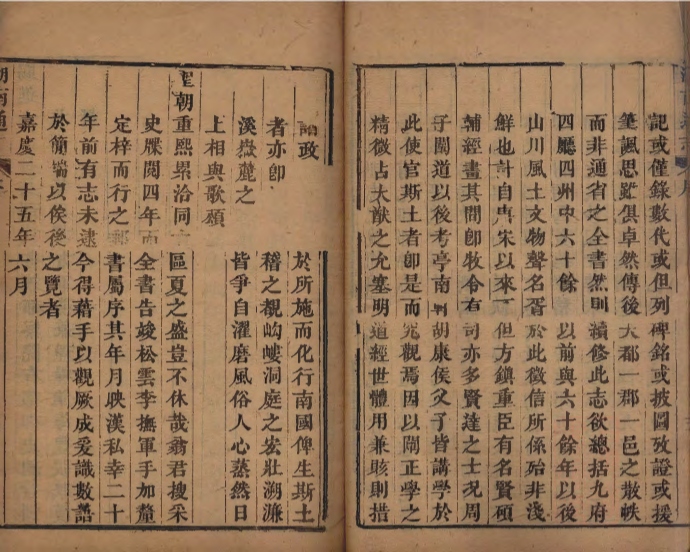 記或僅錄數代或但列碑銘或披圖攷證或援
筆諷思雖俱卓然傳後大都一郡一邑之散帙
而非通省之全書然則續修此志欲總括九府
四廳四州中六十餘 以前與六十餘年以後
山川風土文物聲名胥於此徵信所係殆非淺
鮮也計自唐宋以來不但方鎮重臣有名賢碩
輔經畫其間卽牧令有司亦多賢達之士況周
子闡道以後考亭南軒胡康侯父子皆講學於
此使官斯土者卽是而究觀焉因以闡正學之
精微占大猷之允塞明道經世體用兼賅則措
政於所施而化行南國俾生斯土
者亦卽稽之覩岣嶁洞庭之宏壯溯濂
溪嶽麓之皆爭自濯磨風俗人心蒸然日
上相與歌頌
聖朝重熙累洽同區夏之盛豈不休哉翁君搜采
史牒閱四年而全書告竣松雲李撫軍手加釐
定梓而行之郵書屬序其年月映漢私幸二十
年前有志未逮今得藉手以觀厥成爰識數語
於簡端以俟後之覽者
嘉慶二十五年六月
湖南通